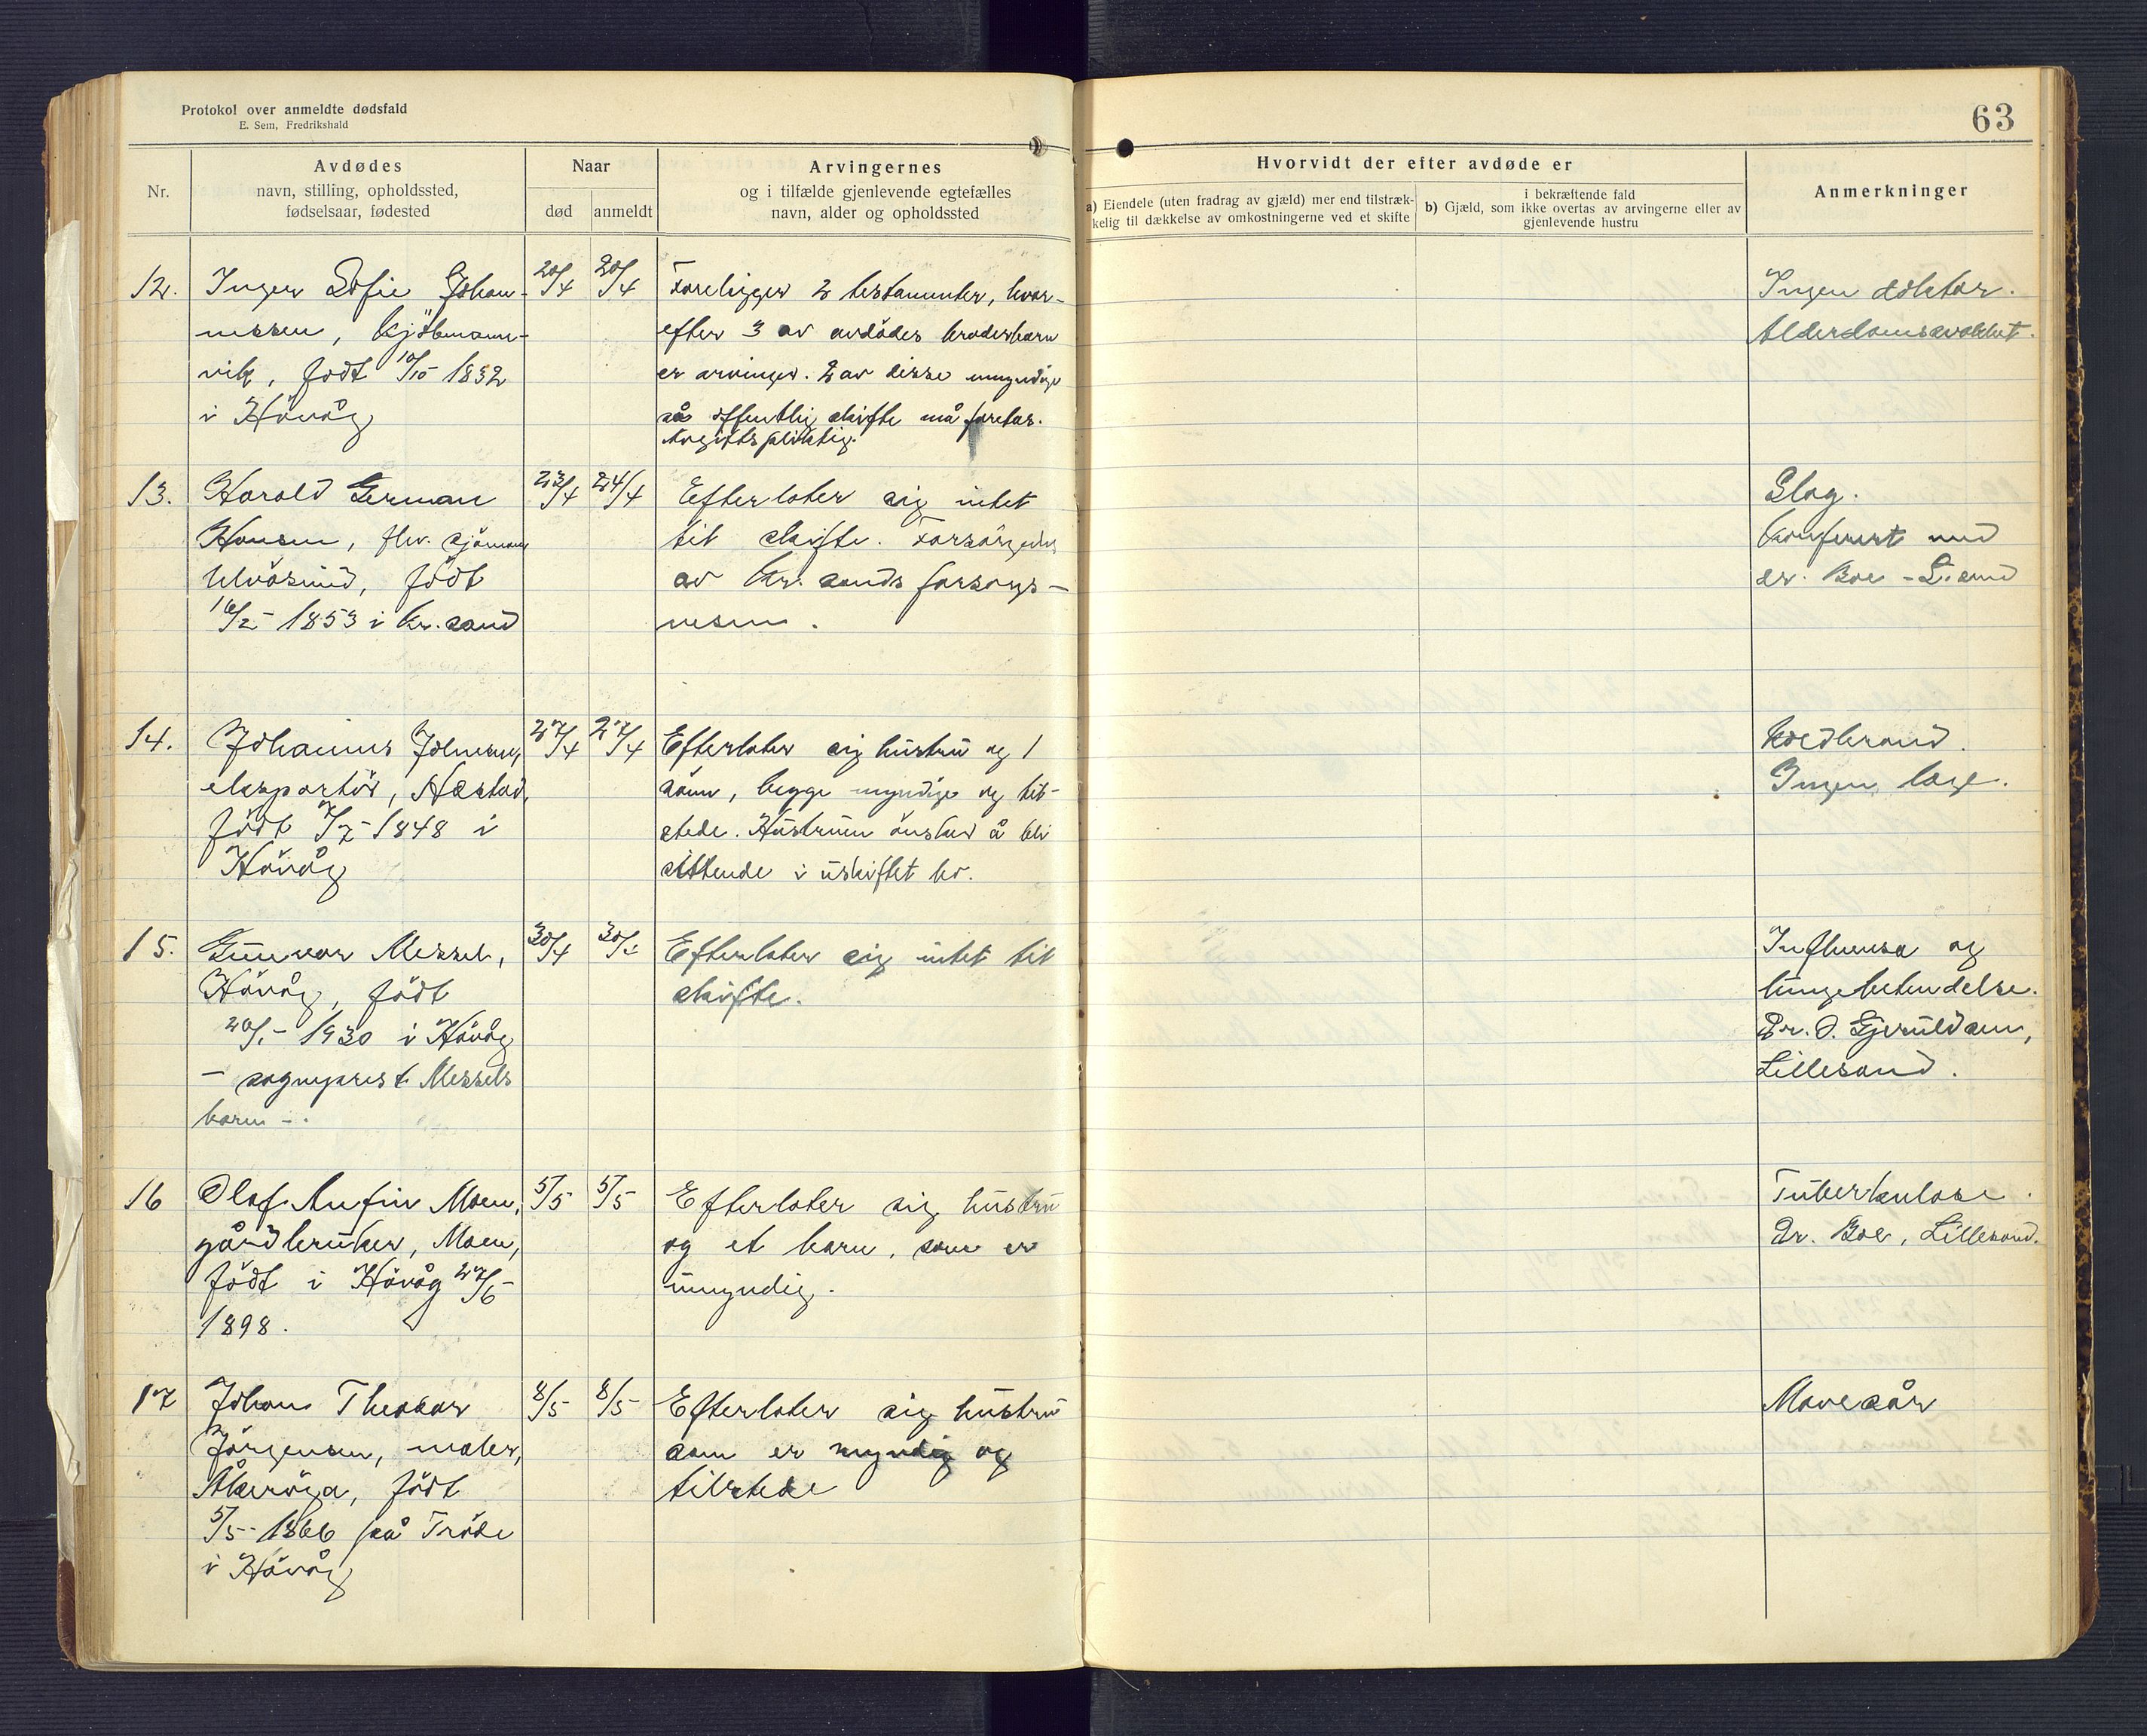 Protokol over anmeldte dødsfald
E. Sem, Fredrikshald
63
Nr.
Avdødes
navn, stilling, opholdssted,
fødselsaar, fødested
Naar
død
anmeldt
Arvingernes
og i tilfælde gjenlevende egtefælles
navn, alder og opholdssted
Hvorvidt der efter avdøde er
a) Eiendele (uten fradrag av gjæld) mer end tilstræk-
kelig til dækkelse av omkostningerne ved et skifte
i bekræftende fald
b) Gjæld, som ikke overtas av arvingerne eller av
gjenlevende hustru
Anmerkninger
12.
Inger Sofie Johan-
nessen, Kjöbmanns-
vik, født 10/10 1832
i Høvåg
20/4
20/4
Foreligger 2 testamenter, hvor-
efter 3 av avdödes broderbarn
er arvinger. 2 av disse umyndige
så offentlig skifte må foretas.
Avgiftspliktig.
Ingen doktor.
Alderdomssvakhet.
13.
Harald German
Hansen, flv. sjömann
Ulvösund, födt
16/2- 1853 i Kr.sand
23/4
24/4
Efterlater sig intet
til skifte. Forsörgedes
av Kr.sands forsorgs-
vesen.
Slag.
Konferert med
dr. Boe - L.sand
14.
Johannes Johnsen,
eksportör, Hæstad,
födt 7/7- 1848 i
Hövåg
27/4
27/4
Efterlater sig hustru og 1
sönn, begge myndige og til-
stede. Hustruen önsker å bli
sittende i uskiftet bo.
Koldbrand.
Ingen læge.
15.
Gunvor Messel,
Hövåg, födt
20/1- 1930 i Hövåg
- sogneprest Messels
barn -.
30/4
30/4
Efterlater sig intet til
skifte.
Influensa og
lungebetendelse.
Dr. O. Gjeruldsen,
Lillesand.
16
Olaf Anfin Moen,
gårdbruker, Moen,
födt i Hövåg 27/6-
1898.
5/5
5/5
Efterlater sig hustru
og et barn, som er
umyndig.
Tuberkulose.
Dr. Boe, Lillesand.
17
Johan Theodor
Jörgensen, maler,
Åkeröya, födt
5/5- 1866 på Tröde
i Hövåg
8/5
8/5
Efterlater sig hustru
som er myndig og
tilstede
Mavesår